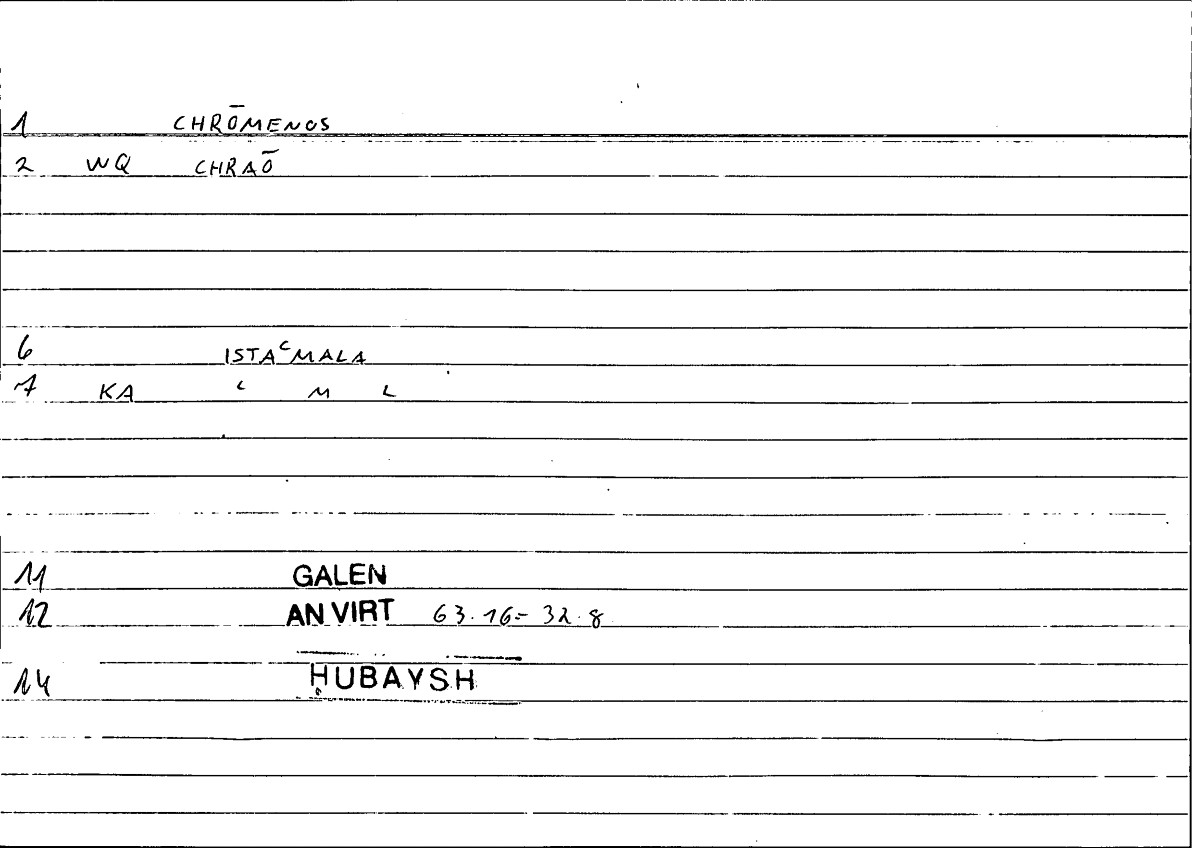 1 CHRŌMENOS
2 WQ CHRAŌ
6 ISTAᶜMALA
7 KA ᶜ M L
11 GALEN
12 AN VIRT 63.16= 32.8
14 ḤUBAYSH